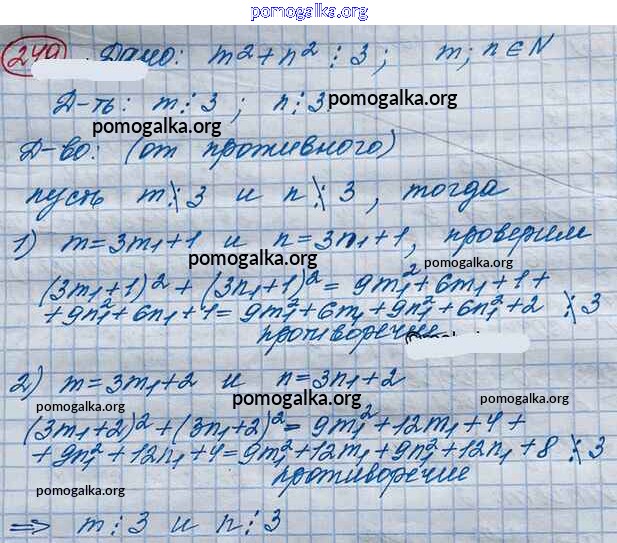 pomogalka.org
249 Дано: m² + n² ⋮ 3; m; n ∈ N
Д-ть: m ⋮ 3; n ⋮ 3. pomogalka.org
pomogalka.org
Д-во: (от противного)
пусть m ⋮̸ 3 и n ⋮̸ 3, тогда
pomogalka.org
1) m = 3m₁ + 1 и n = 3n₁ + 1, проверим
pomogalka.org pomogalka.org
(3m₁+1)² + (3n₁+1)² = 9m₁² + 6m₁ + 1 +
+ 9n₁² + 6n₁ + 1 = 9m₁² + 6m₁ + 9n₁² + 6n₁² + 2 ⋮̸ 3
противоречие
2) m = 3m₁ + 2 и n = 3n₁ + 2
pomogalka.org pomogalka.org pomogalka.org
(3m₁+2)² + (3n₁+2)² = 9m₁² + 12m₁ + 4 +
+ 9n₁² + 12n₁ + 4 = 9m₁² + 12m₁ + 9n₁² + 12n₁ + 8 ⋮̸ 3
противоречие
pomogalka.org pomogalka.org
⇒ m ⋮ 3 и n ⋮ 3